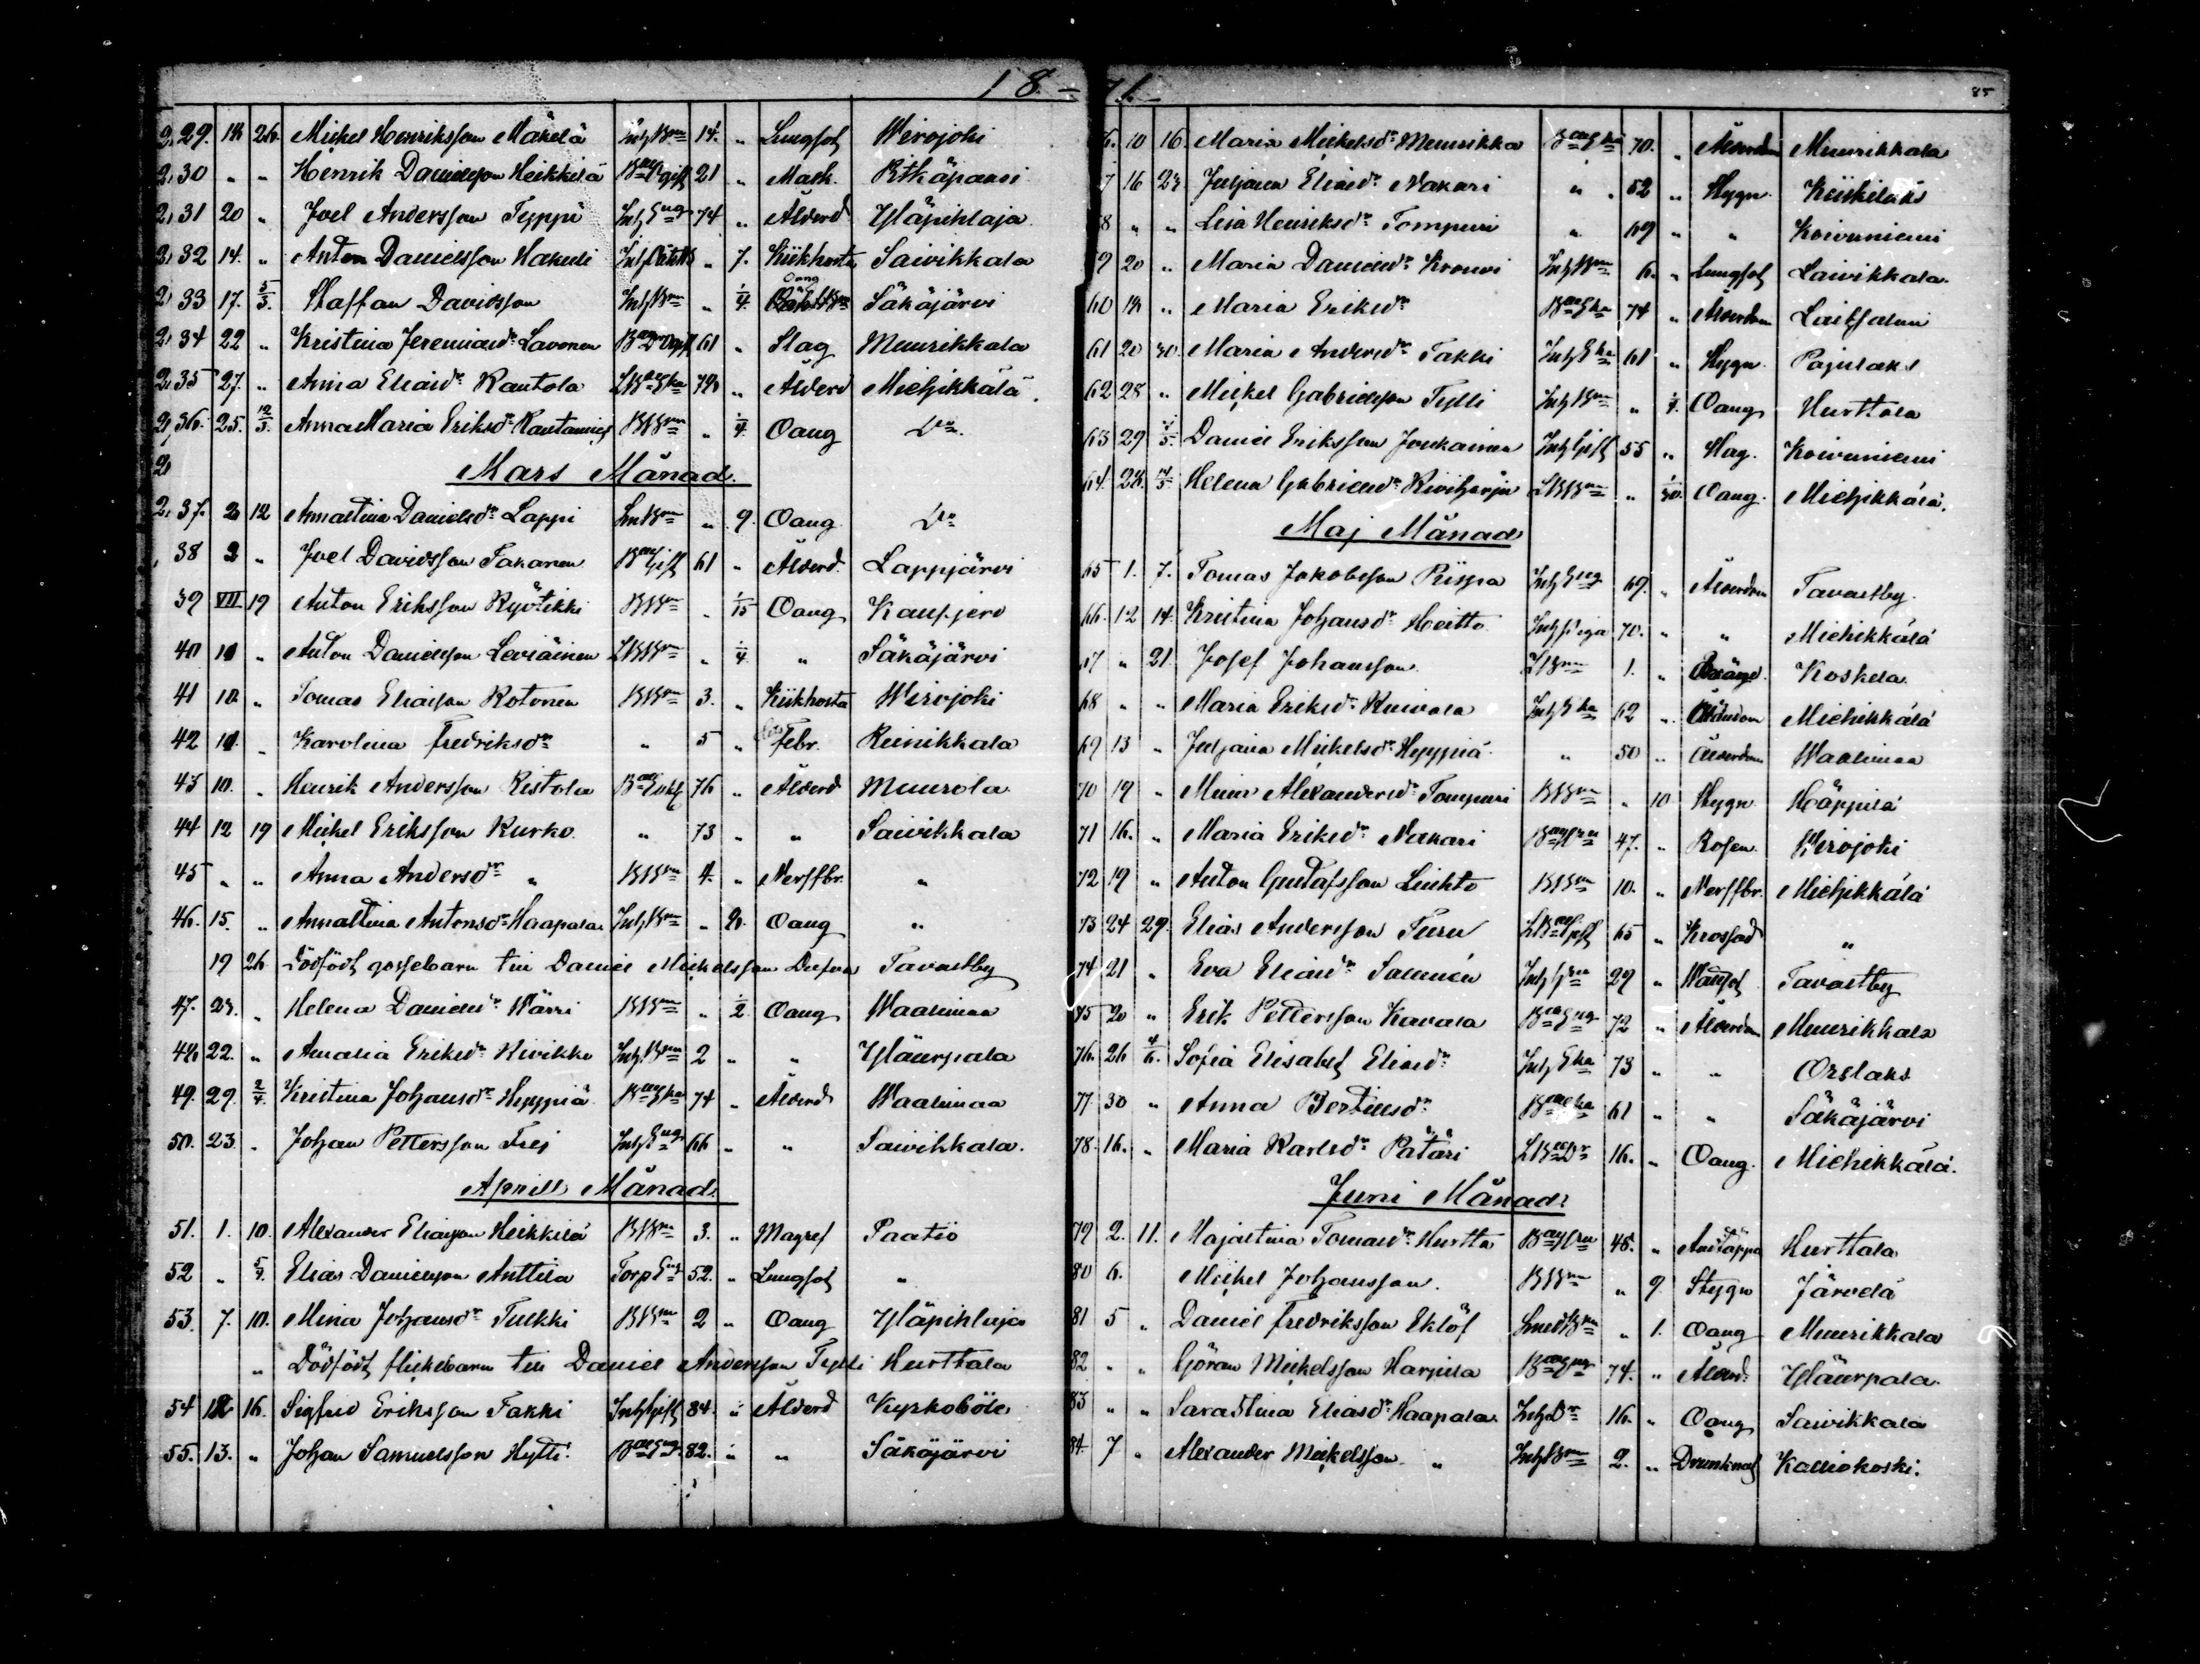 18-71
85
29. 18 26. Mickel Henriksson Mäkelä Inh Bn 14. " Lungsot Wirojoki
30 " " Henrik Danielsson Heikkilä 21 " Mask. Pitkäpaasi
31 20 " Joel Andersson Typpi Inh Eng 74 " Ålderd Yläpihlaja
32 14. " Anton Danielsson Hakuli " 7. Kikhosta Saivikkala
33 17. 5/3. Staffan Davidsson Inh Bn " 1/4. Oang Säkäjärvi
34 22 " Kristina Jeremiasdr Lavonen 61 " Slag Muurikkala
35 27. " Anna Eliasdr Rautola Eka " Ålderd Miehikkälä
36. 25. 12/3. Anna Maria Eriksdr BBn " 1/4 Oang Do
Mars Månad.
37. 2 12 Annastina Danielsdr Lappi " 9. Oang Do
38 2 " Joel Davidsson Takanen Gift 61 " Ålderd. Lappjärvi
39 VII 19 Anton Eriksson Kyötikki BBn " 1/15 Oang
40 10 " Anton Danielsson Leviäinen LBBn " 1/4 " Säkäjärvi
41 10. " Tomas Eliasson Kotonen BBn 3. " Kikhosta Wirojoki
42 10. " Karolina Fredriksdr " 5 " Febr. Reinikkala
43 10. " Henrik Andersson Ristola 76 " Ålderd Muurola
44 12 19 Mickel Eriksson Kurko " 73 " " Saivikkala
45 " " Anna Andersdr " BBn 4. " Nerffbr. "
46. 15. " Annastina Antonsdr Haapala Inh Bn " Oang "
19 26 Dödfödt gossebarn till Daniel Mickelsson Tavastby
47. 23. " Helena Danielsdr Wärri BBn " 1/2 Oang Waalimaa
48 22. " Amalia Eriksdr Kivikko Inh Bn 2 " " Yläurpala
49. 29. 2/4. Kristina Johansdr Hyyppiä Eka 74 " Ålderd Waalimaa
50. 23. " Johan Pettersson Frej Inh Eng 66 " " Saivikkala.
Aprill Månad.
51. 1. 10. Alexander Eliasson Heikkilä BBn 3. " Magref Paatio
52 " 5/4. Elias Danielsson Anttila Torp Eng 52. " Lungsot "
53. 7. 10. Mina Johansdr Tulkki BBn 2 " Oang Yläpihlaja
" Dödfödt flickebarn till Daniel Andersson Tylli Hurttala
54 12 16. Sigfrid Eriksson Takki Inh Gift 84. " Ålderd Kyrkoböle
55. 13. " Johan Samuelsson Hytti. Eng. 82. " " Säkäjärvi
6. 10 16. Maria Mickelsdr Muurikka Eka 70. " Ålderdom Muurikkala
7 16 23 Juljana Eliasdr Nakari " 52 " Stygn. Kiiskilaks
8 " " Lisa Henriksdr Tompuri " 69 " " Koivuniemi
9 20 " Maria Danielsdr Krouvi Inh Bn 6. " Lungsot Saivikkala.
60 18 " Maria Eriksdr Eka 74 " Ålderdom Laitsalmi
61 20 30. Maria Andersdr Takki Inh Eka 61 " Stygn. Pajulaks
62 28 " Mickel Gabrielsson Tylli Inh Bn " 1/4. Oang Hurttala
63 29 Daniel Eriksson Joukainen Inh Gift 55 " Slag. Koivuniemi
64. 28. Helena Gabrielsdr Kiviharju LBBn " 1/30. Oang. Miehikkälä.
Maj Månad
65 1. 7. Tomas Jakobsson Piispa Inh Eng 69. " Ålderdom Tavastby.
66. 12 14. Kristina Johansdr Heitto Inh Piga 70. " " Miehikkälä
67 " 21. Josef Johansson LBn 1. " Koskela
68 " " Maria Eriksdr Kuivala Inh Eka 62 " Miehikkälä
69 13 " Juljana Mickelsdr Hyyppiä " 50 " Ålderdom Waalimaa
70 19 " Alexandersdr Tompuri BBn " 10 Stygn Häppilä
71 16. " Maria Eriksdr Nakari 47. " Rosen. Wirojoki
72 19 " Anton Gustafsson Liuhto BBn 10. " Nerffbr. Miehikkälä
73 24 29. Elias Andersson Turu 65 " Krossad "
74 21 " Eva Eliasdr Salmén 29 " Wattsot Tavastby
85 20 " Erik Pettersson Kavala Eng 72 " Ålderdom Muurikkala
76. 26 4/6. Sofia Elisabet Eliasdr Inh Eka 73 " " Orslaks
77 30 " Anna Bertilsdr Eka 61 " " Säkäjärvi
78. 16. " Maria Karlsdr Pätäri 16. " Oang. Miehikkälä.
Juni Månad.
79 2. 11. Majastina Tomasdr Hurtta 45. " Andtäppa Hurttala
80 6. Mickel Johansson. BBn " 9 Stygn Järvelä
81 5 " Daniel Fredriksson Eklöf Smed Bn " 1. Oang Muurikkala
82 " " Göran Mickelsson Harjula 74. " Ålderd. Yläurpala.
83 " " Sarastina Eliasdr Haapala. Inh Dr 16. " Oang Saivikkala
84. 7 " Alexander Mickelsson " Inh Bn 2. " Drunknat Kalliokoski.